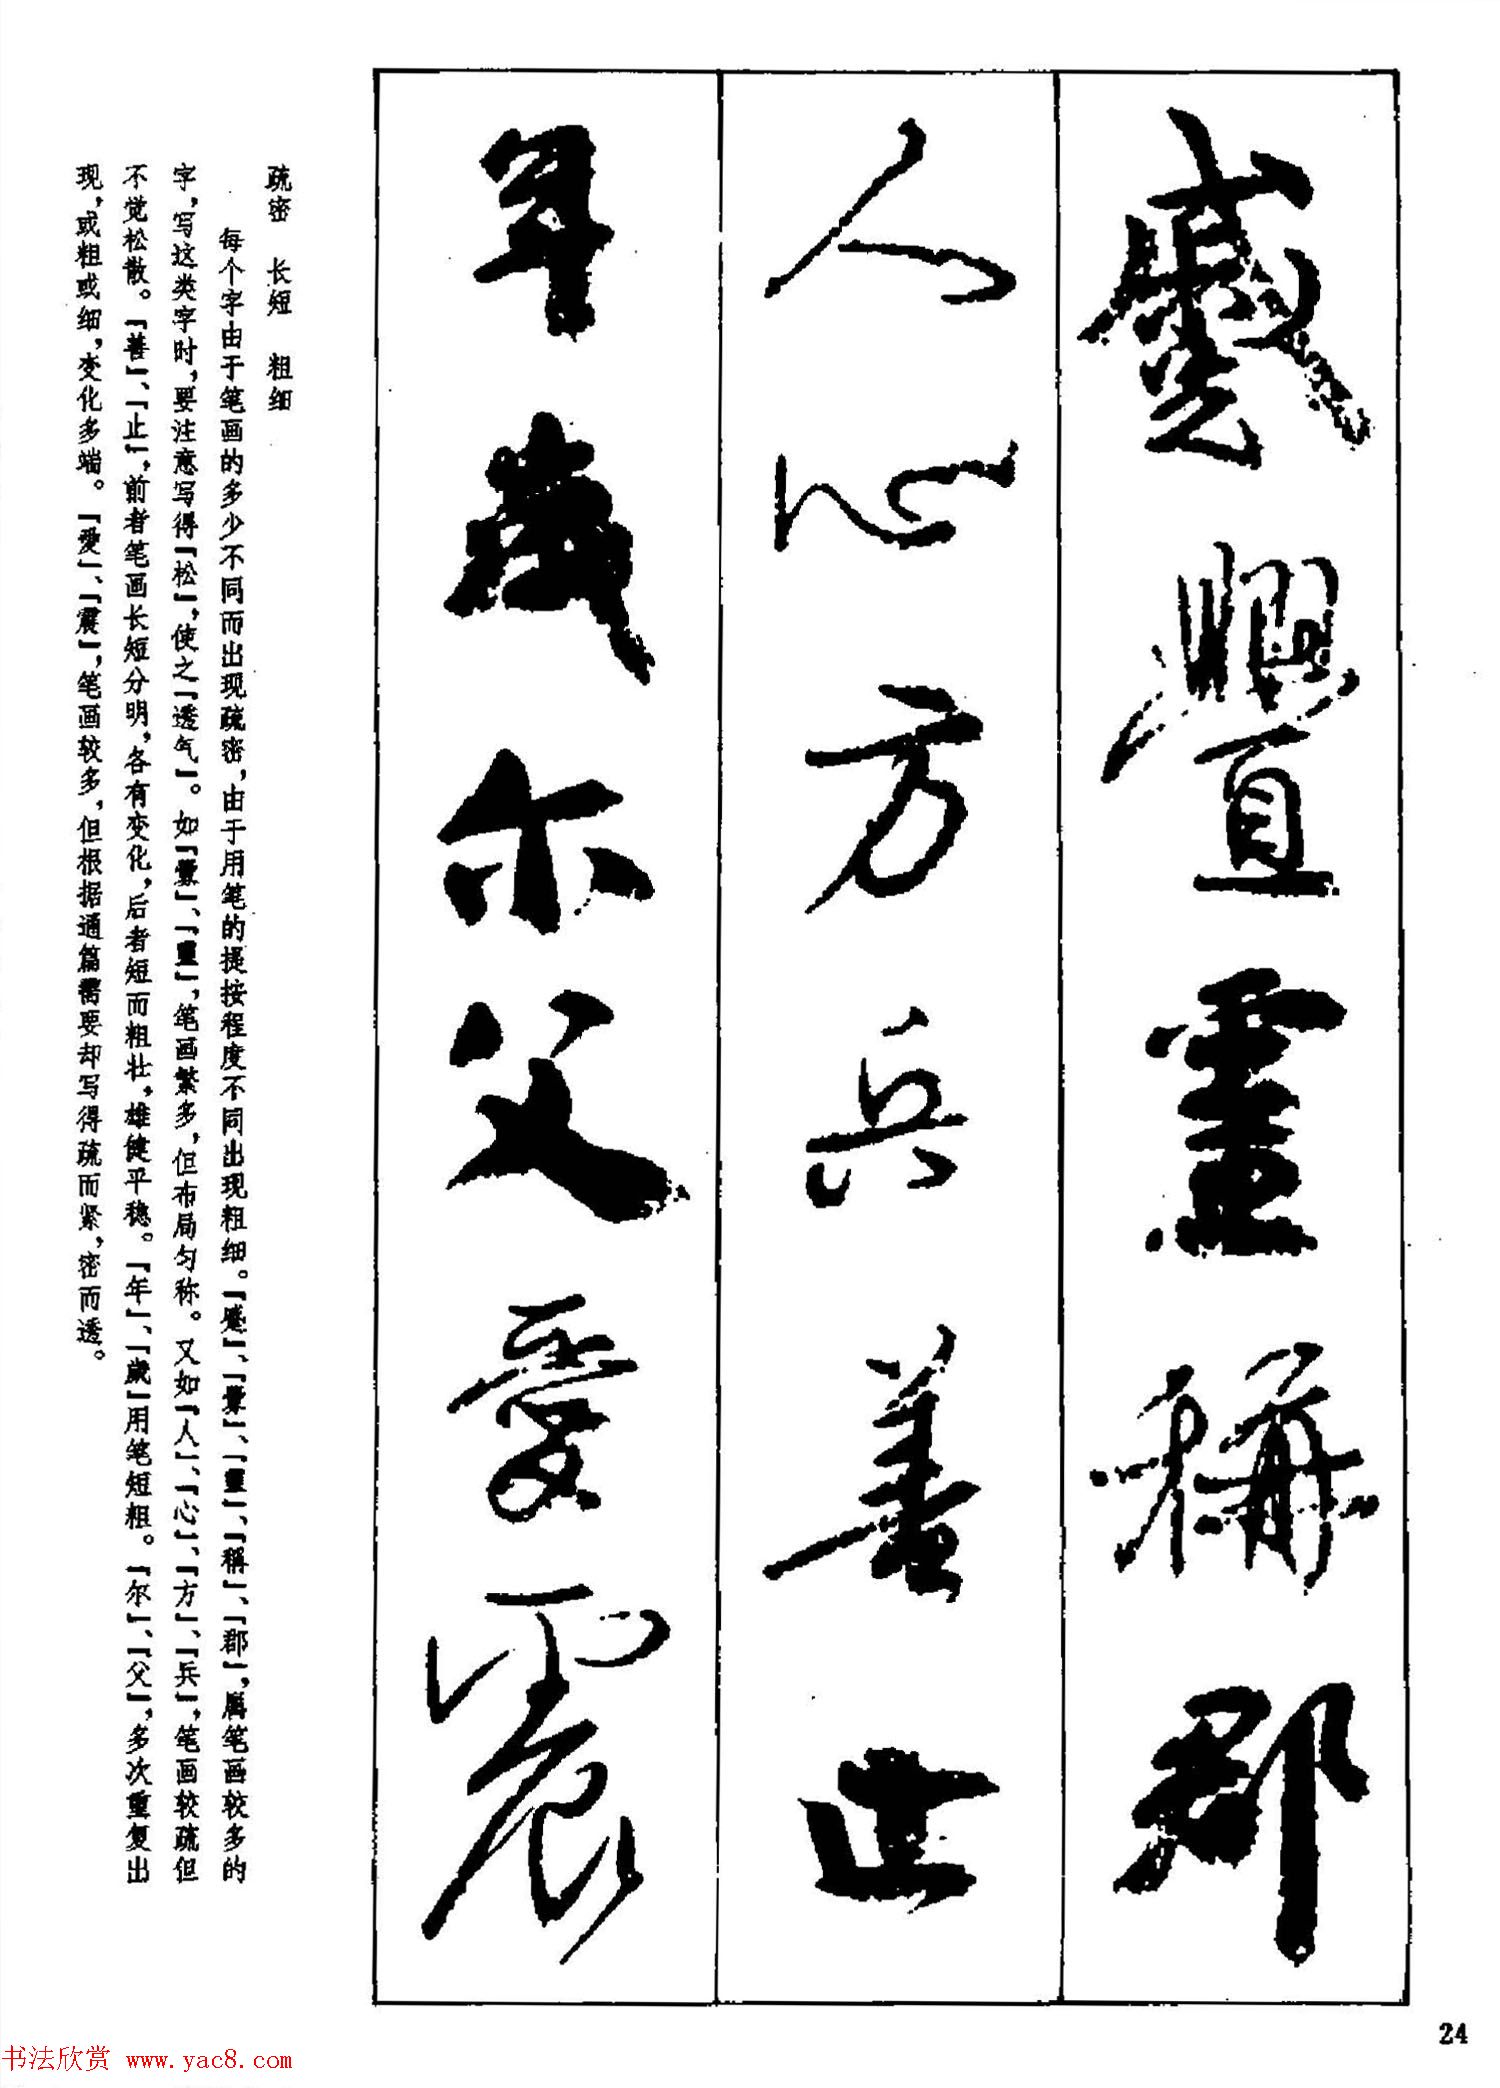 蹙舋靈稱郡
人心方兵善止
年歲尔父愛震
疏密 长短 粗细
每个字由于笔画的多少不同而出现疏密,由于用笔的提按程度不同出现粗细。「蹙」、「舋」、「靈」、「稱」、「郡」,属笔画较多的
字,写这类字时,要注意写得「松」,使之「透气」。如「舋」、「靈」,笔画繁多,但布局匀称。又如「人」、「心」、「方」、「兵」,笔画较疏但
不觉松散。「善」、「止」,前者笔画长短分明,各有变化,后者短而粗壮,雄健平稳。「年」、「歲」用笔短粗。「尔」、「父」,多次重复出
现,或粗或细,变化多端。「愛」、「震」,笔画较多,但根据通篇需要却写得疏而紧,密而透。
24
书法欣赏 www.yac8.com